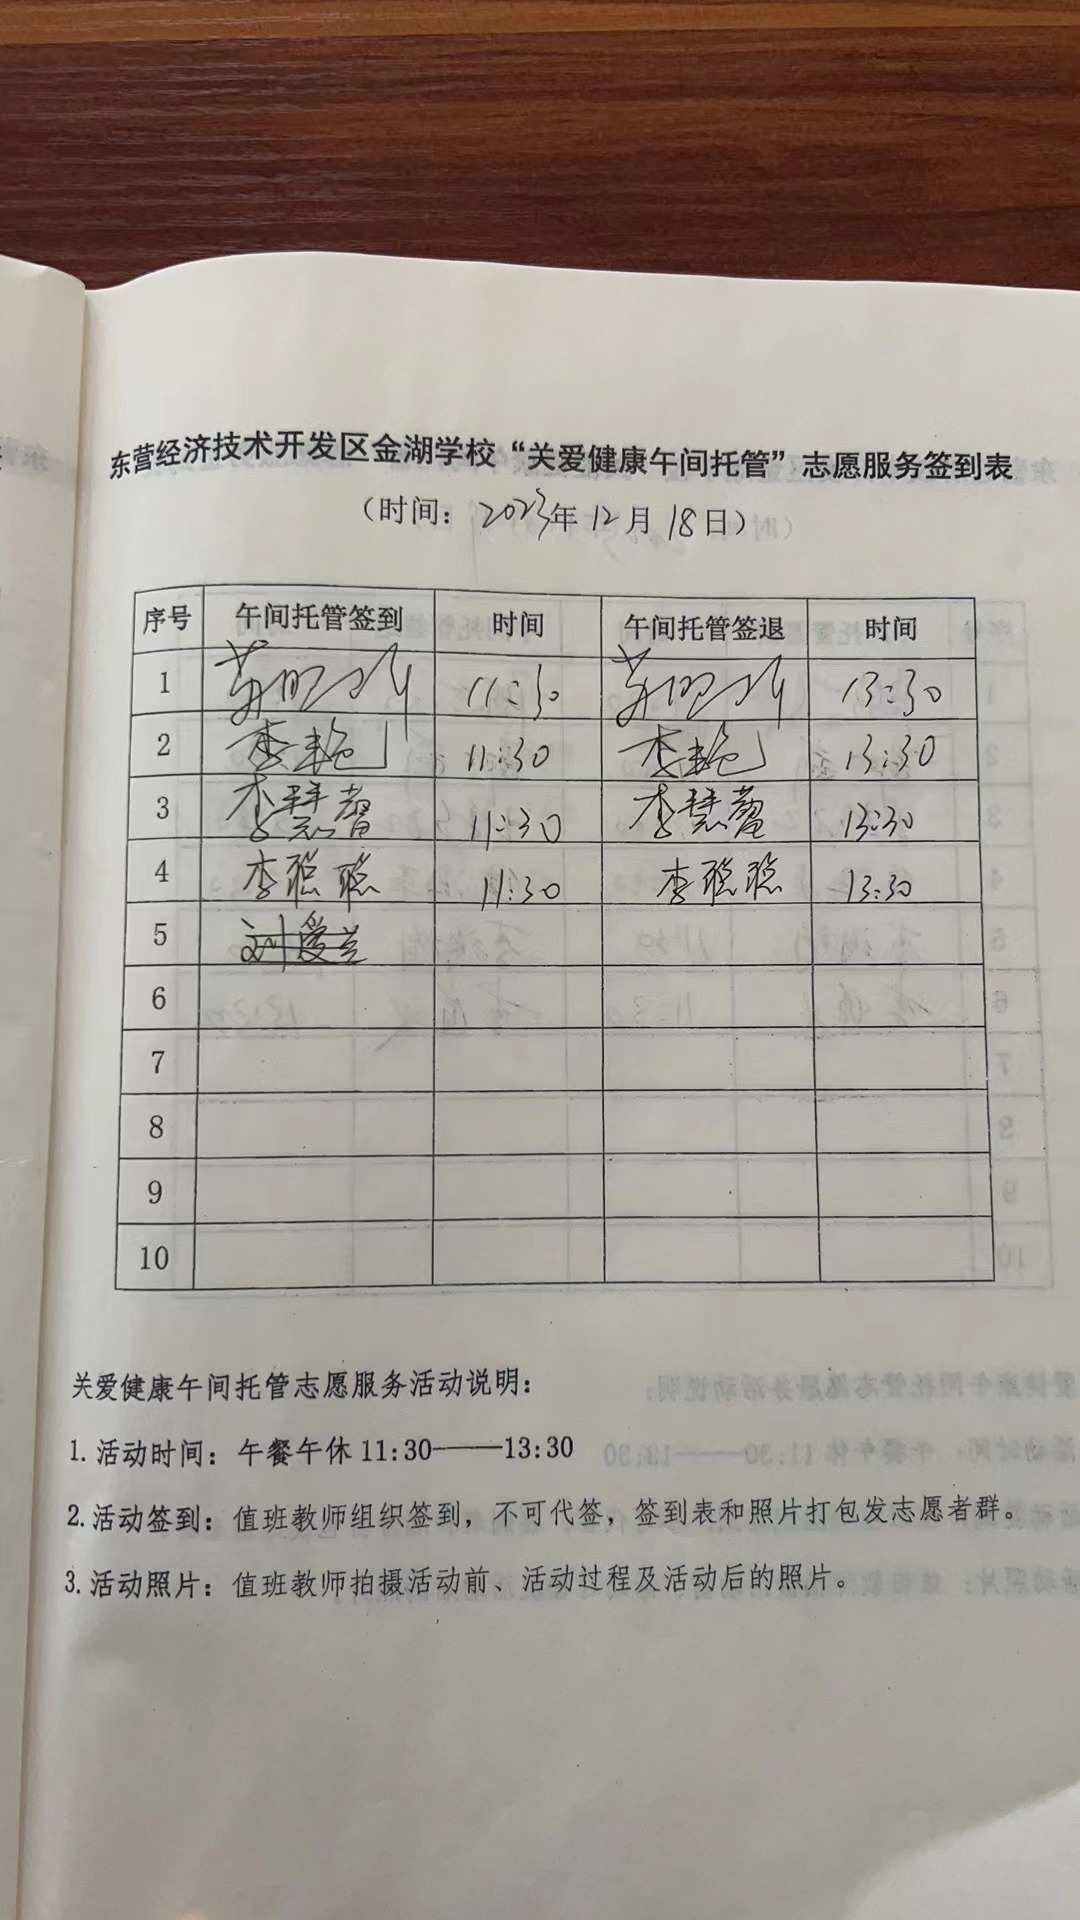 东营经济技术开发区金湖学校“关爱健康午间托管”志愿服务签到表
（时间：2023年12月18日）
序号 午间托管签到 时间 午间托管签退 时间
1 11:30 13:30
2 李艳 11:30 李艳 13:30
3 李慧馨 11:30 李慧馨 13:30
4 李聪聪 11:30 李聪聪 13:30
5 刘爱兰
6
7
8
9
10
关爱健康午间托管志愿服务活动说明：
1.活动时间：午餐午休11:30——13:30
2.活动签到：值班教师组织签到，不可代签，签到表和照片打包发志愿者群。
3.活动照片：值班教师拍摄活动前、活动过程及活动后的照片。